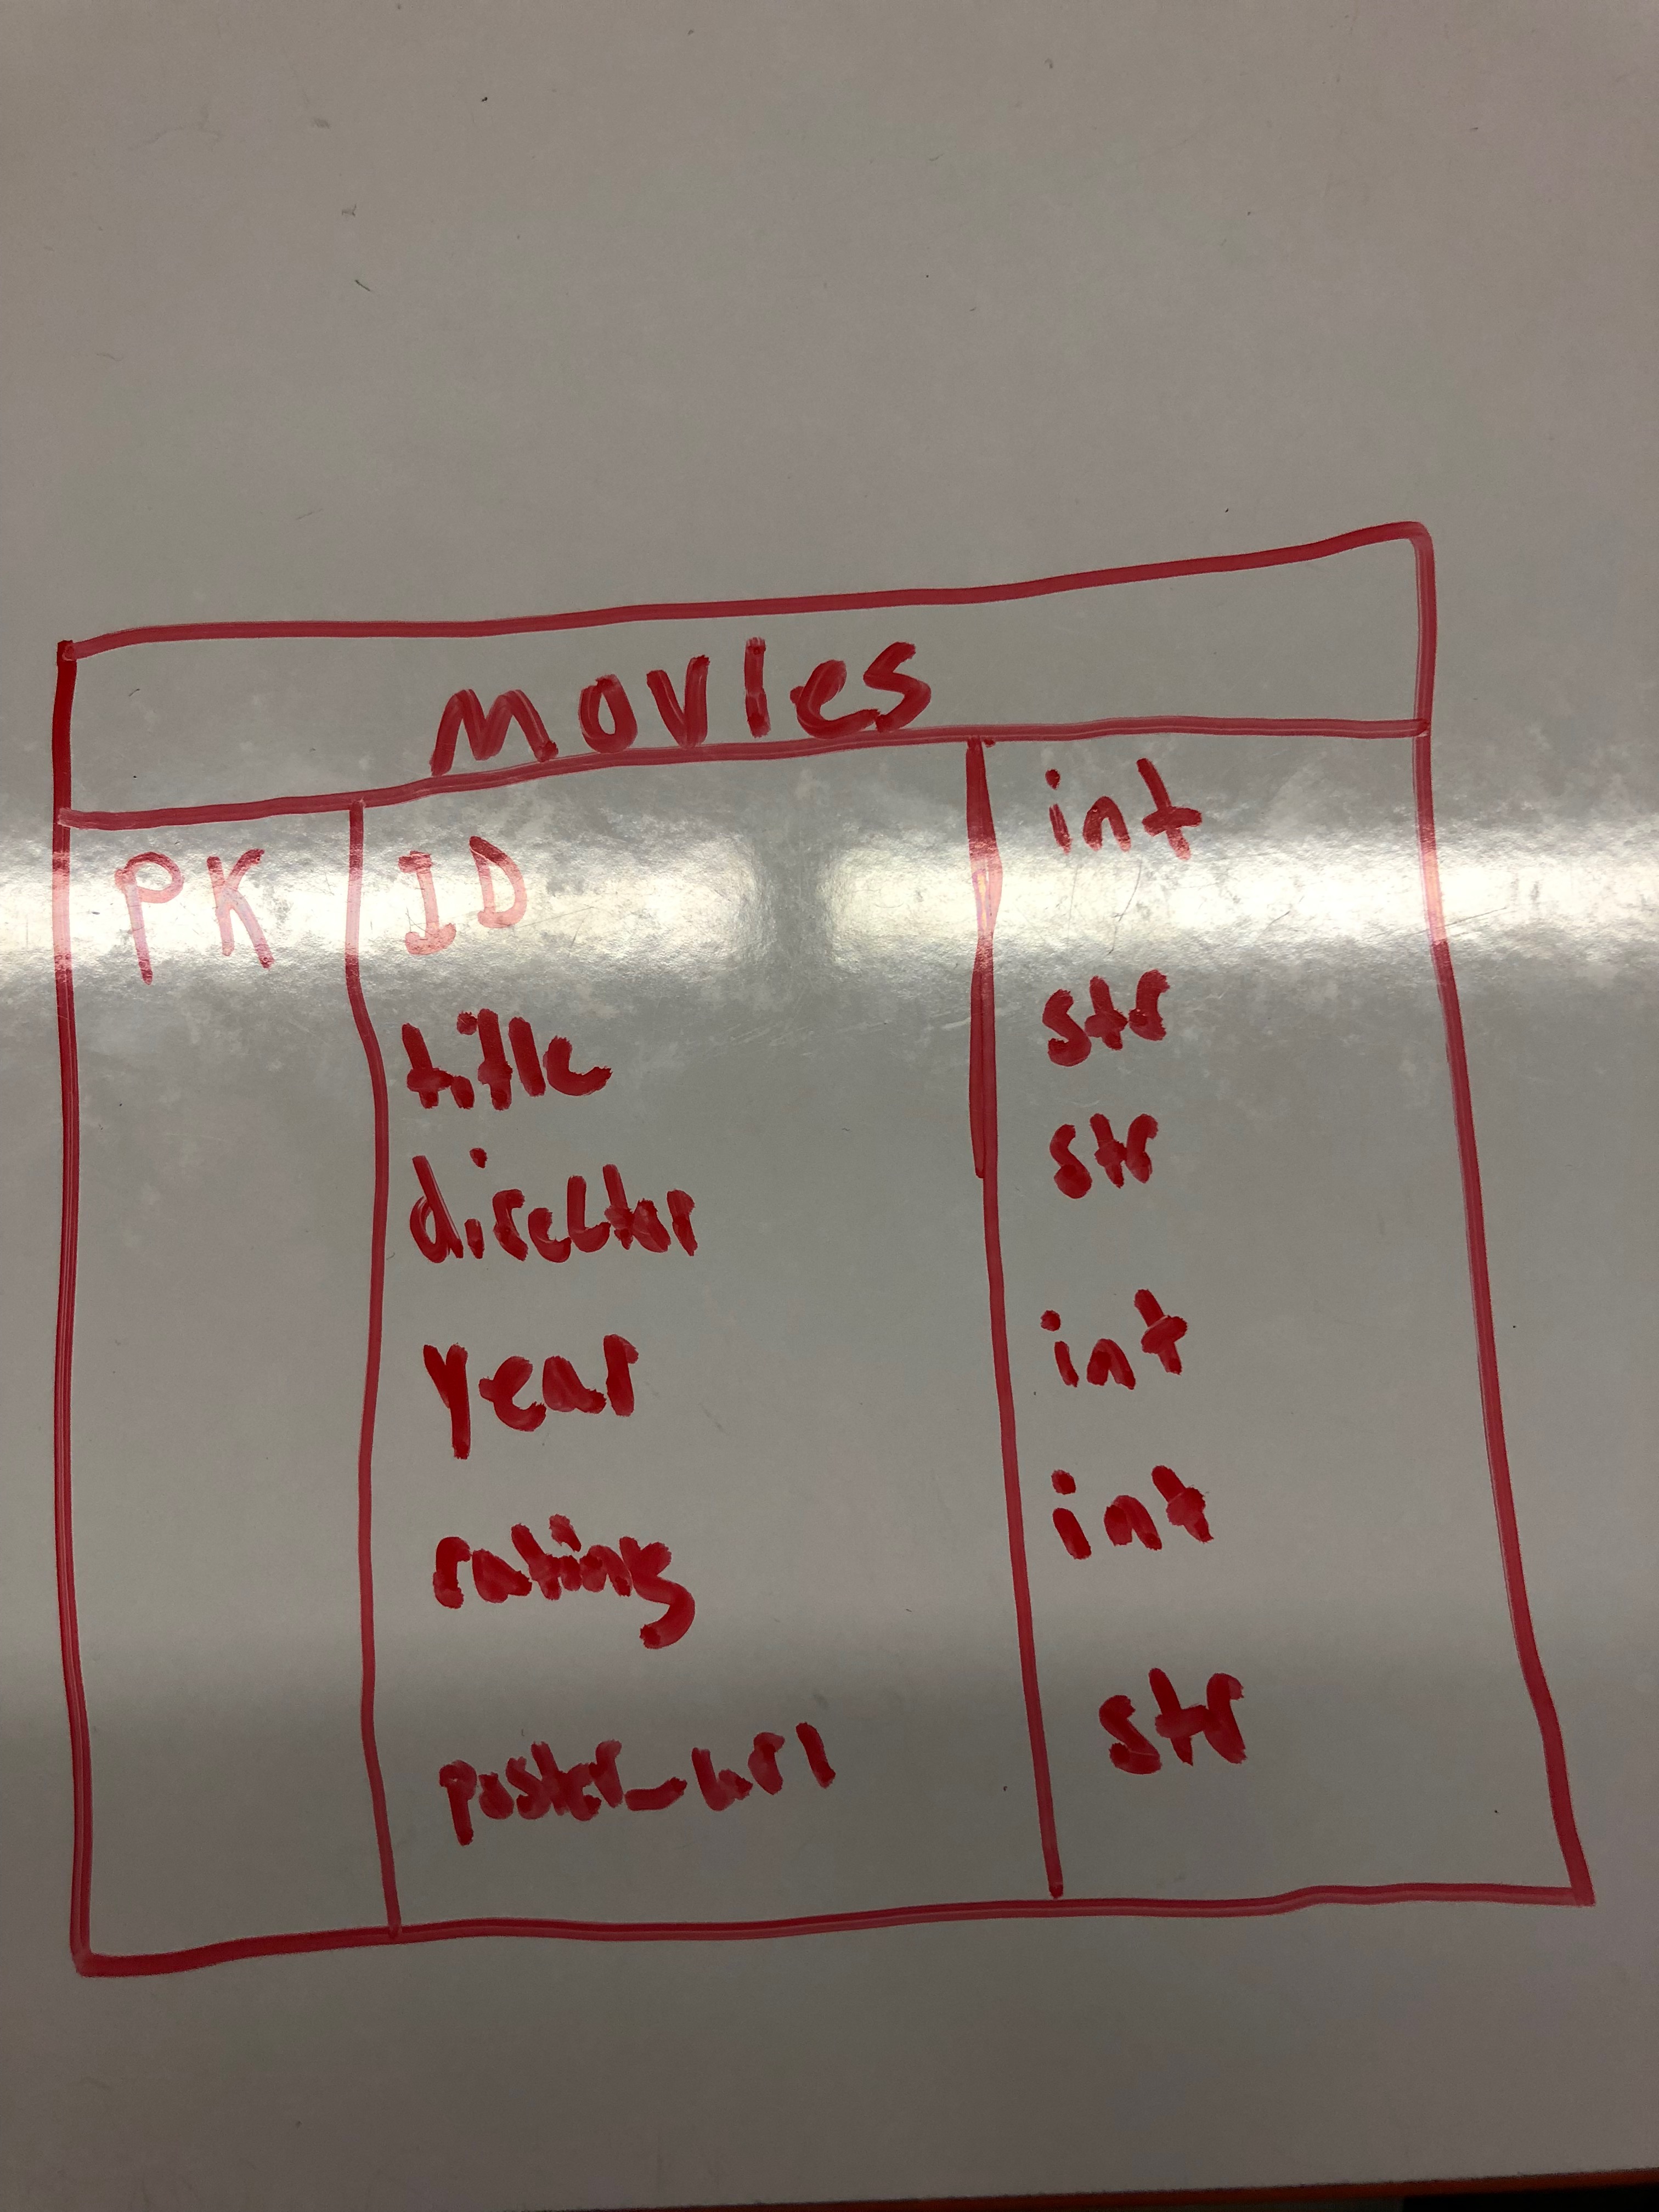 movies
PK ID int
title str
director str
year int
rating int
poster_url str